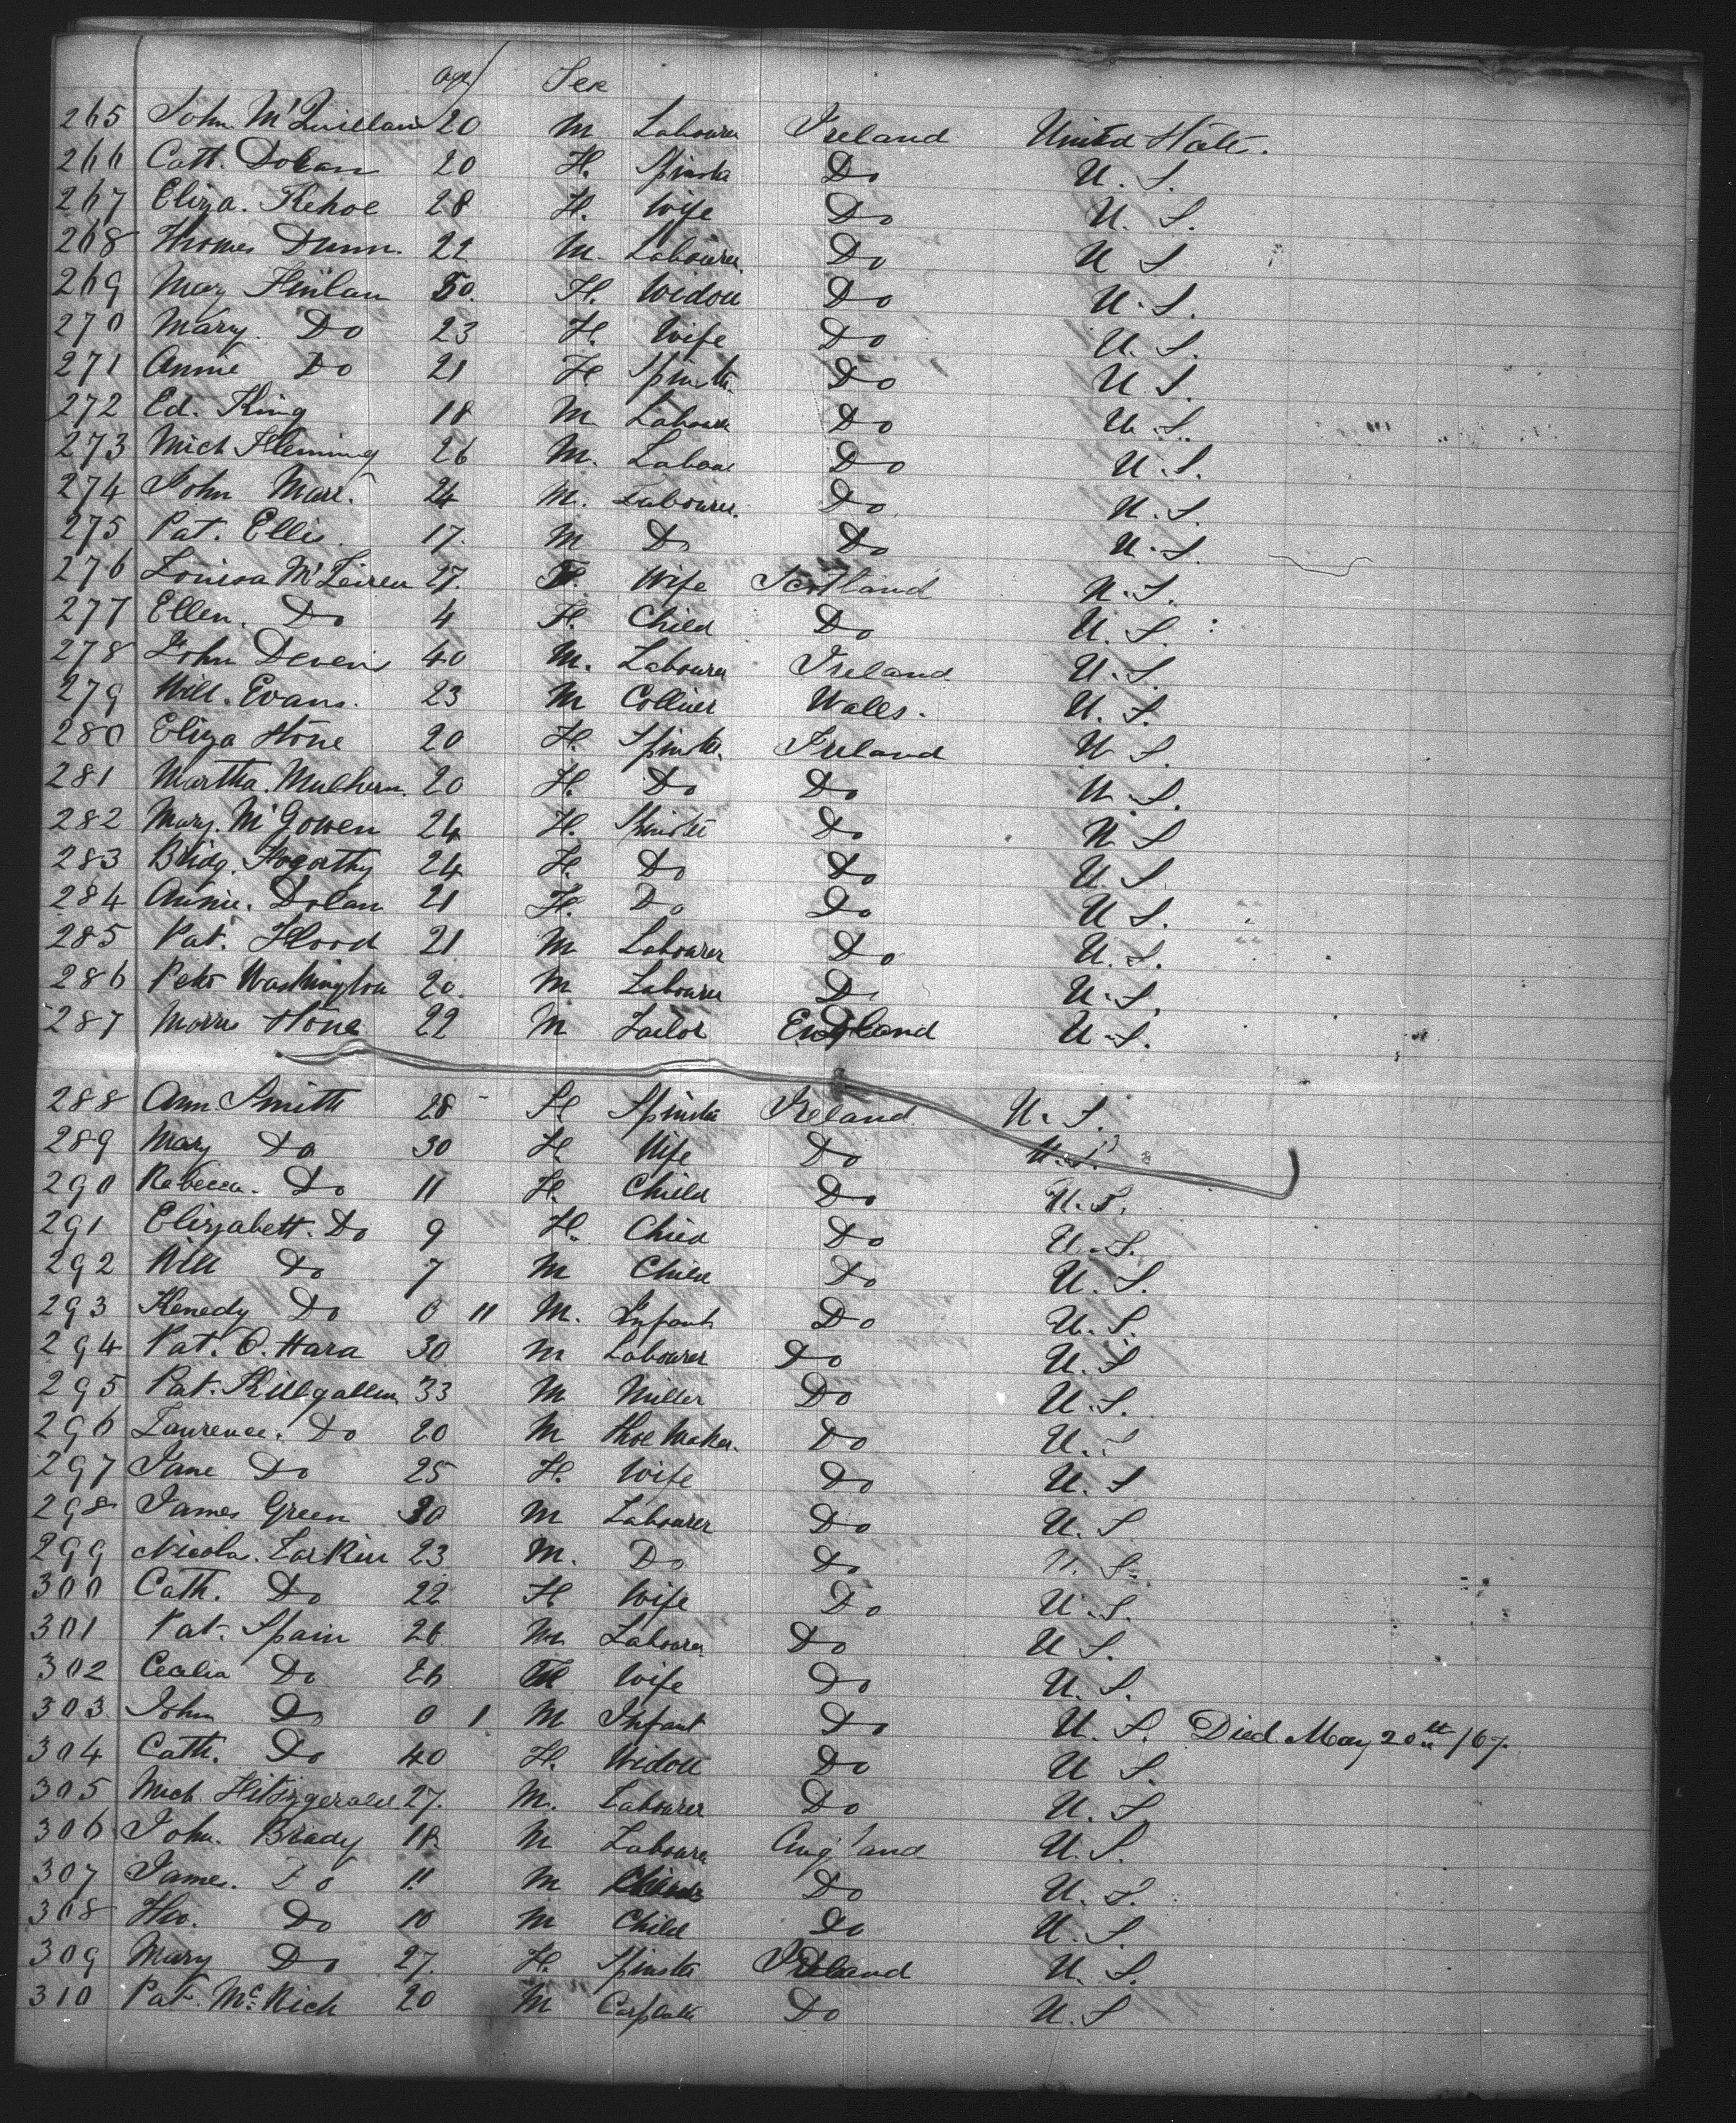 age Sex
265 John McQuillan 20 M Labourer Ireland United State.
266 Cath. Dolan 20 F. Spinster Do U. S.
267 Eliza. Kehoe 28 F. Wife Do U. S.
268 Thomas Dunn. 22 M. Labourer Do U S
269 Mary 50. F. Widow Do U. S.
270 Mary. Do 23 F. Wife Do U. S.
271 Annie Do 21 F Spinster Do U. S.
272 Ed. King 18 M Labourer Do U. S.
273 Mich Fleming 26 M. Labour Do U. S.
274 John Marr. 24 M. Labourer. Do U. S.
275 Pat. Ellis. 17. M Do Do U. S.
276 Louisa 27. F. Wife Scotland U. S.
277 Ellen. Do 4 F. Child Do U. S.
278 John Devein 40 M. Labourer Ireland U. S.
279 Will. Evans. 23 M Collier Wales. U. S.
280 Eliza Hone 20 F. Spinster. Ireland U S.
281 Martha. Mulhern. 20 F. Do Do U. S.
282 Mary. McGowen 24 F. Spinster Do U S
283 Bridg. Fogarthy 24 F. Do Do U. S
284 Annie. Dolan 21 F. Do Do U S.
285 Pat. Flood 21 M Labourer Do U. S.
286 Peter Washington 20. M Labourer Do U. S.
287 Morris Hone 22 M Tailor England U. S.
288 Ann. Smith 28 F Spinster Ireland U. S.
289 Mary Do 30 F. Wife Do U. S.
290 Rebecca. Do 11 F. Child Do U. S.
291 Elizabeth. Do 9 F. Child Do U. S.
292 Will Do 7 M Child Do U. S.
293 Kenedy Do 0 11 M. Infant Do U. S.
294 Pat. O. Hara 30 M Labourer Do U. S
295 Pat. Killgallen 33 M Miller Do U. S.
296 Laurence. Do 20 M Shoe Maker. Do U. S
297 Jane Do 25 F. Wife Do U. S
298 James Green 30 M Labourer Do U. S
299 Nicola. Larkin 23 M. Do Do U. S.
300 Cath. Do 22 F Wife Do U. S.
301 Pat. Spain 26 M Labourer Do U S.
302 Cecilia Do 26 F Wife Do U. S.
303 John Do 0 1 M Infant Do U. S. Died May 20th /67.
304 Cath. Do 40 F. Widow Do U S.
305 Mich. Fitzgerald 27. M. Labourer Do U. S.
306 John. Brady 18 M Labourer England U. S.
307 James. Do 11 M Child Do U. S.
308 Do 10 M Child Do U. S.
309 Mary Do 27. F. Spinster Ireland U. S.
310 Pat. Mc Nich 20 M Do U. S